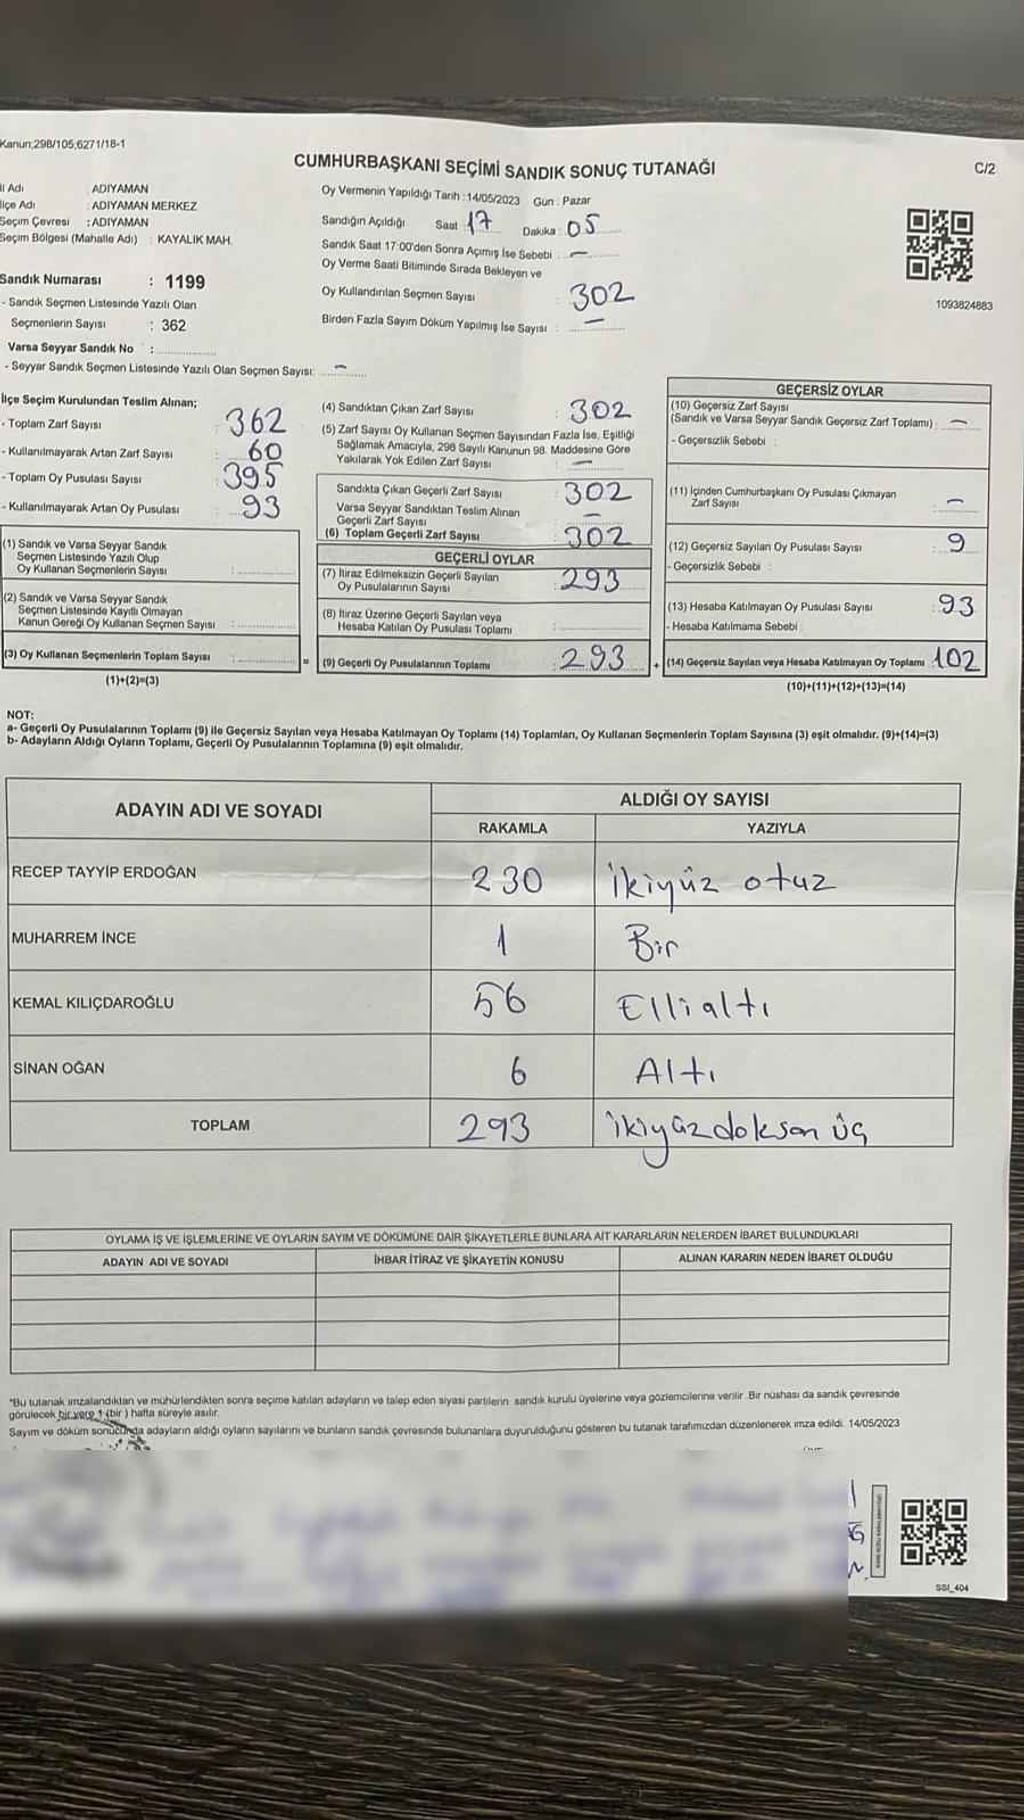 Kanun;298/105,6271/18-1
CUMHURBAŞKANI SEÇİMİ SANDIK SONUÇ TUTANAĞI
C/2
İl Adı ADIYAMAN
İlçe Adı ADIYAMAN MERKEZ
Seçim Çevresi : ADIYAMAN
Seçim Bölgesi (Mahalle Adı) : KAYALIK MAH.
Sandık Numarası : 1199
- Sandık Seçmen Listesinde Yazılı Olan
Seçmenlerin Sayısı : 362
Varsa Seyyar Sandık No :
- Seyyar Sandık Seçmen Listesinde Yazılı Olan Seçmen Sayısı: -
Oy Vermenin Yapıldığı Tarih :14/05/2023 Gün : Pazar
Sandığın Açıldığı Saat 17 Dakika 05
Sandık Saat 17:00'den Sonra Açımış İse Sebebi -
Oy Verme Saati Bitiminde Sırada Bekleyen ve
Oy Kullandırılan Seçmen Sayısı 302
Birden Fazla Sayım Döküm Yapılmış İse Sayısı : -
1093824883
İlçe Seçim Kurulundan Teslim Alınan;
- Toplam Zarf Sayısı : 362
- Kullanılmayarak Artan Zarf Sayısı : 60
- Toplam Oy Pusulası Sayısı : 395
- Kullanılmayarak Artan Oy Pusulası : 93
(1) Sandık ve Varsa Seyyar Sandık
Seçmen Listesinde Yazılı Olup
Oy Kullanan Seçmenlerin Sayısı :
(2) Sandık ve Varsa Seyyar Sandık
Seçmen Listesinde Kayıtlı Olmayan
Kanun Gereği Oy Kullanan Seçmen Sayısı :
(3) Oy Kullanan Seçmenlerin Toplam Sayısı :
(1)+(2)=(3)
(4) Sandıktan Çıkan Zarf Sayısı : 302
(5) Zarf Sayısı Oy Kullanan Seçmen Sayısından Fazla İse, Eşitliği
Sağlamak Amacıyla, 298 Sayılı Kanunun 98. Maddesine Göre
Yakılarak Yok Edilen Zarf Sayısı -
Sandıkta Çıkan Geçerli Zarf Sayısı 302
Varsa Seyyar Sandıktan Teslim Alınan
Geçerli Zarf Sayısı -
(6) Toplam Geçerli Zarf Sayısı 302
GEÇERLİ OYLAR
(7) İtiraz Edilmeksizin Geçerli Sayılan
Oy Pusulalarının Sayısı 293
(8) İtiraz Üzerine Geçerli Sayılan veya
Hesaba Katılan Oy Pusulası Toplamı
= (9) Geçerli Oy Pusulalarının Toplamı 293
GEÇERSİZ OYLAR
(10) Geçersiz Zarf Sayısı
(Sandık ve Varsa Seyyar Sandık Geçersiz Zarf Toplamı) : -
- Geçersizlik Sebebi :
(11) İçinden Cumhurbaşkanı Oy Pusulası Çıkmayan
Zarf Sayısı -
(12) Geçersiz Sayılan Oy Pusulası Sayısı 9
- Geçersizlik Sebebi :
(13) Hesaba Katılmayan Oy Pusulası Sayısı 93
- Hesaba Katılmama Sebebi
+ (14) Geçersiz Sayılan veya Hesaba Katılmayan Oy Toplamı 102
(10)+(11)+(12)+(13)=(14)
NOT:
a- Geçerli Oy Pusulalarının Toplamı (9) ile Geçersiz Sayılan veya Hesaba Katılmayan Oy Toplamı (14) Toplamları, Oy Kullanan Seçmenlerin Toplam Sayısına (3) eşit olmalıdır. (9)+(14)=(3)
b- Adayların Aldığı Oyların Toplamı, Geçerli Oy Pusulalarının Toplamına (9) eşit olmalıdır.
ADAYIN ADI VE SOYADI ALDIĞI OY SAYISI
RAKAMLA YAZIYLA
RECEP TAYYİP ERDOĞAN 230 ikiyüz otuz
MUHARREM İNCE 1 Bir
KEMAL KILIÇDAROĞLU 56 Ellialtı
SİNAN OĞAN 6 Altı
TOPLAM 293 ikiyüzdoksan üç
OYLAMA İŞ VE İŞLEMLERİNE VE OYLARIN SAYIM VE DÖKÜMÜNE DAİR ŞİKAYETLERLE BUNLARA AİT KARARLARIN NELERDEN İBARET BULUNDUKLARI
ADAYIN ADI VE SOYADI İHBAR İTİRAZ VE ŞİKAYETİN KONUSU ALINAN KARARIN NEDEN İBARET OLDUĞU
*Bu tutanak imzalandıktan ve mühürlendikten sonra seçime katılan adayların ve talep eden siyasi partilerin sandık kurulu üyelerine veya gözlemcilerine verilir. Bir nüshası da sandık çevresinde
görülecek bir yere 1 (bir ) hafta süreyle asılır.
Sayım ve döküm sonucunda adayların aldığı oyların sayılarını ve bunların sandık çevresinde bulunanlara duyurulduğunu gösteren bu tutanak tarafımızdan düzenlenerek imza edildi. 14/05/2023
SSI_404